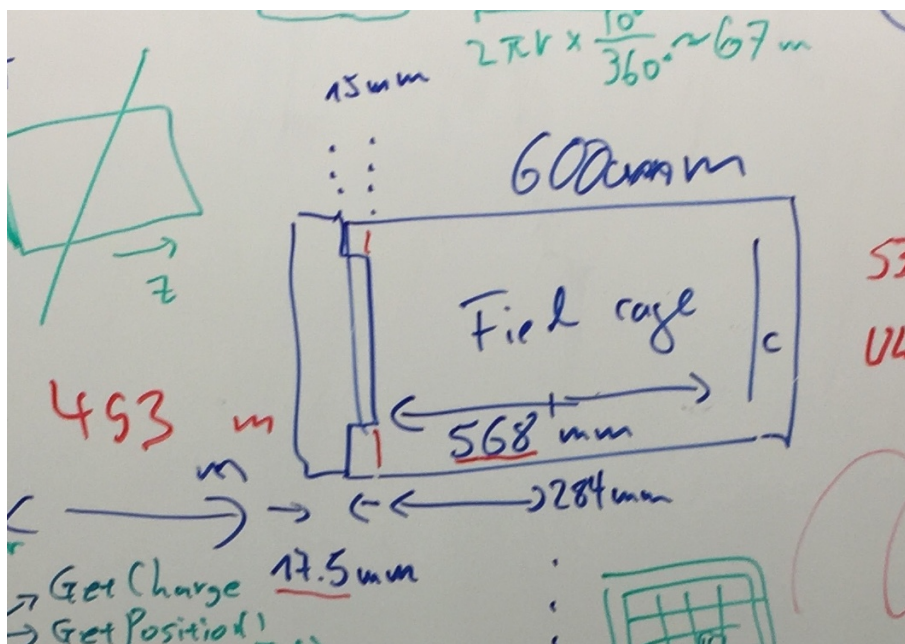 2πr × 10°/360° ~ 67 m
15mm
600mm
z
Field cage
c
53
493 m
568 mm
m
284mm
17.5mm
→ GetCharge
→ GetPosition()